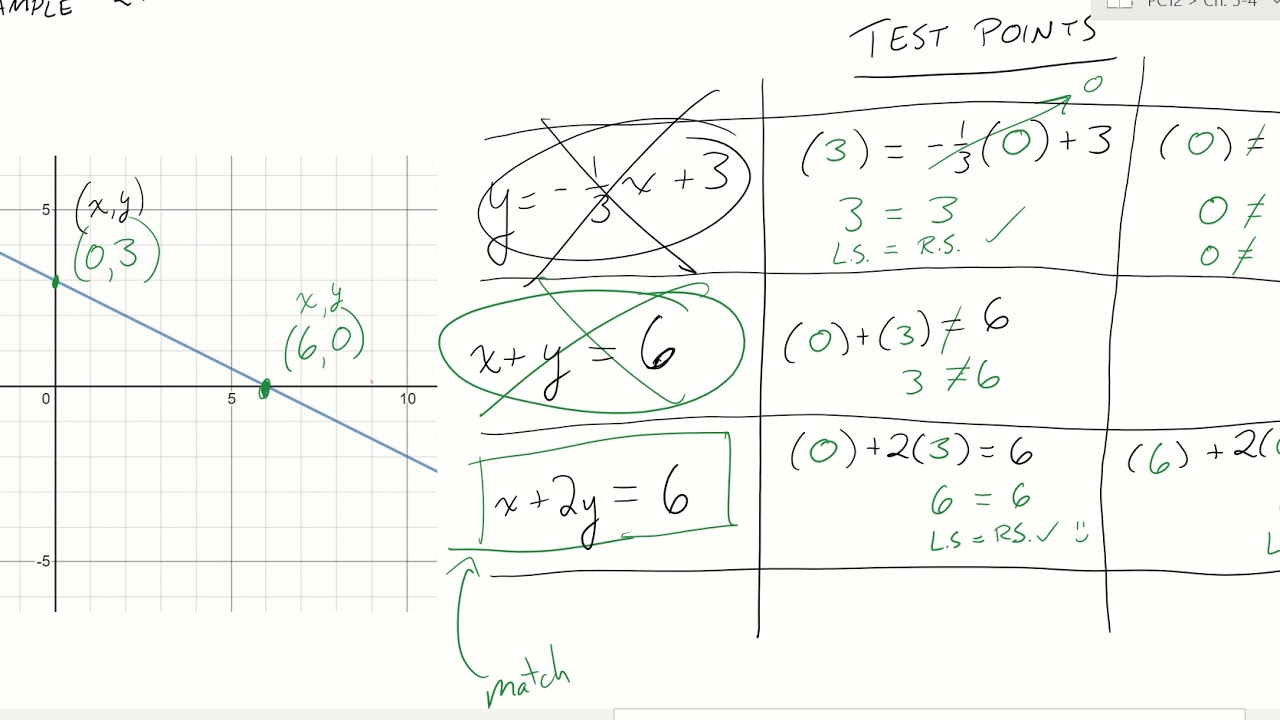 AMPLE
PC12 > Ch. 3-4
TEST POINTS
0
y = -1/3 x + 3
(3) = -1/3 (0) + 3
(0) ≠
3 = 3
0 ≠
L.S. = R.S. ✓
0 ≠
x + y = 6
(0) + (3) ≠ 6
3 ≠ 6
x + 2y = 6
(0) + 2(3) = 6
(6) + 2(0
6 = 6
L.S = R.S. ✓ :)
L
match
5
(x, y)
(0, 3)
x, y
(6, 0)
0
5
10
-5